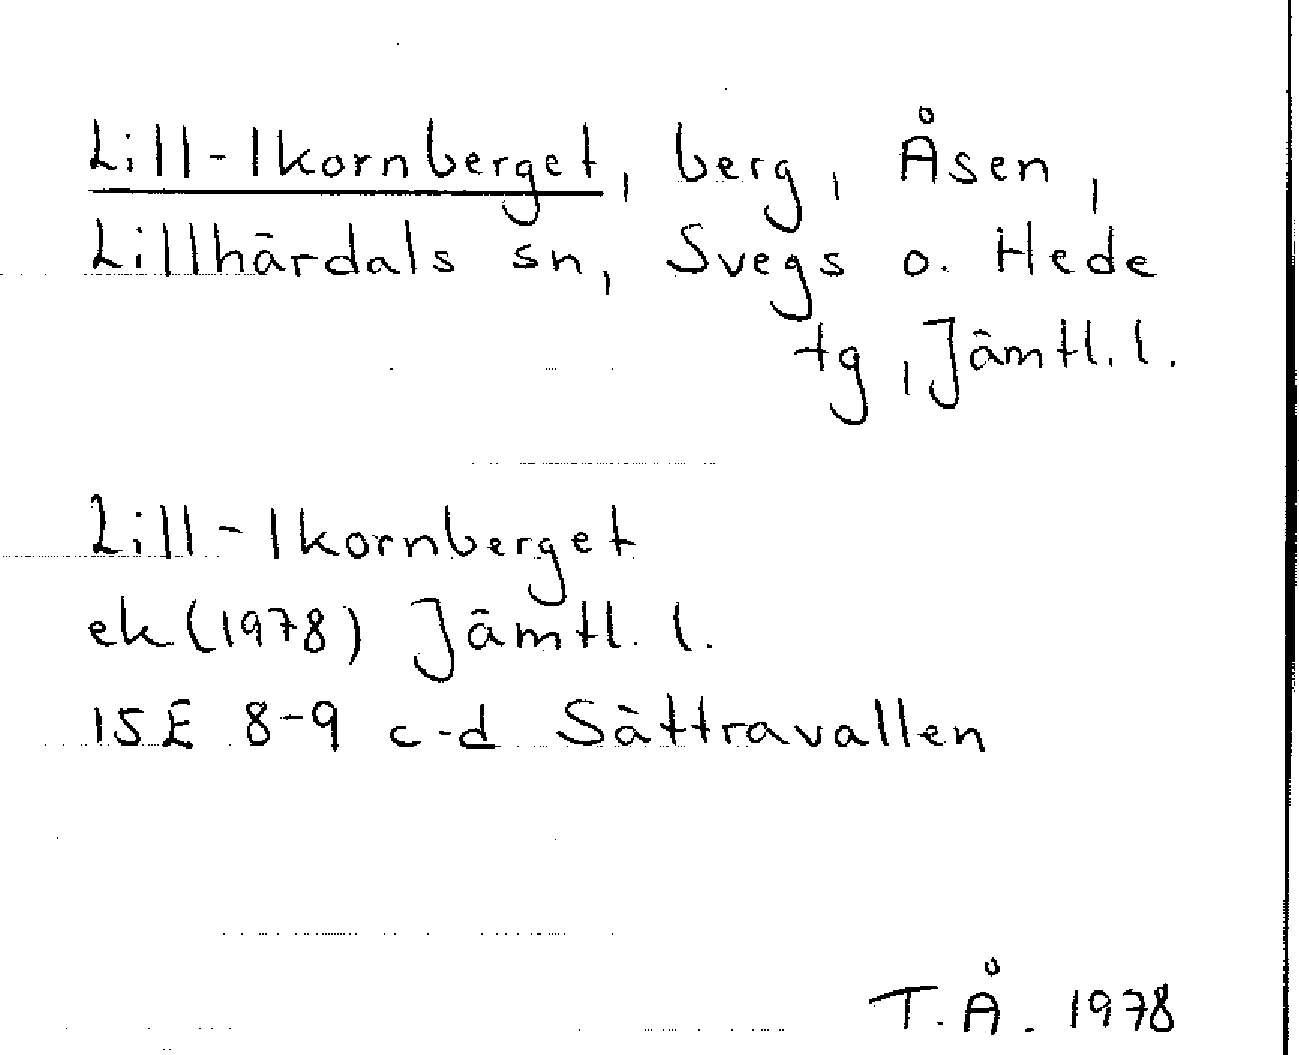 Lill-Ikornberget, berg, Åsen,
Lillhärdals sn, Svegs o. Hede
tg, Jämtl. l.
Lill-Ikornberget
ek (1978) Jämtl. l.
15E 8-9 c-d Sättravallen
T.Å. 1978